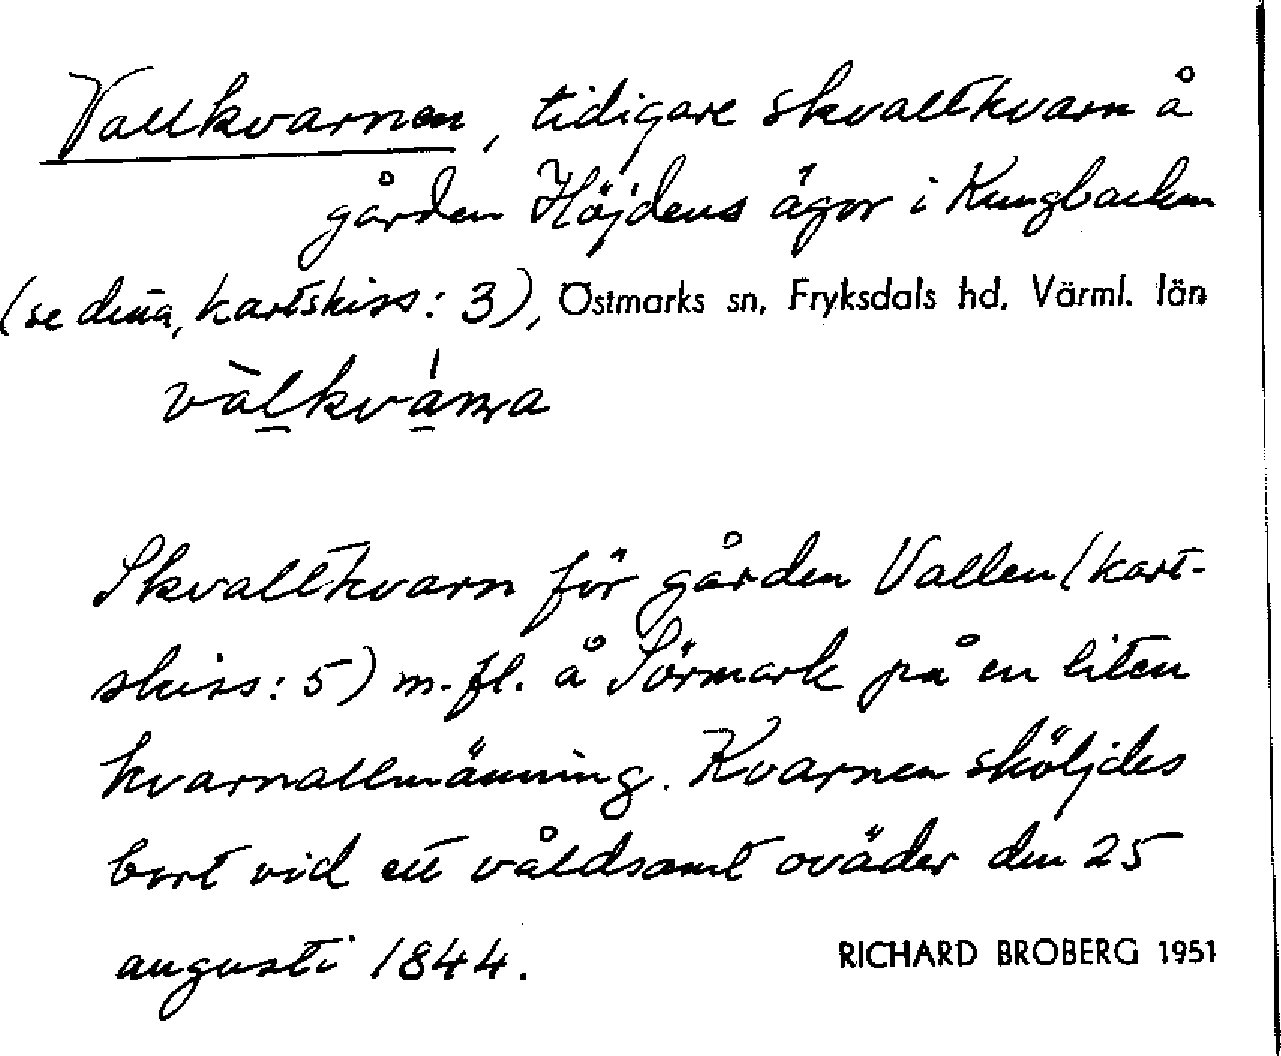 Vallkvarnen, tidigare skvaltkvarn å
gården Höjdens ägor i Kungbacken
(se denna, kartskiss: 3), Östmarks sn, Fryksdals hd, Värml. län
vàl̠kvá̠ rṇa
Skvaltkvarn för gården Vallen (kart-
skiss: 5) m. fl. å Sörmark på en liten
kvarnallmänning. Kvarnen sköljdes
bort vid ett våldsamt oväder den 25
augusti 1844.
RICHARD BROBERG 1951